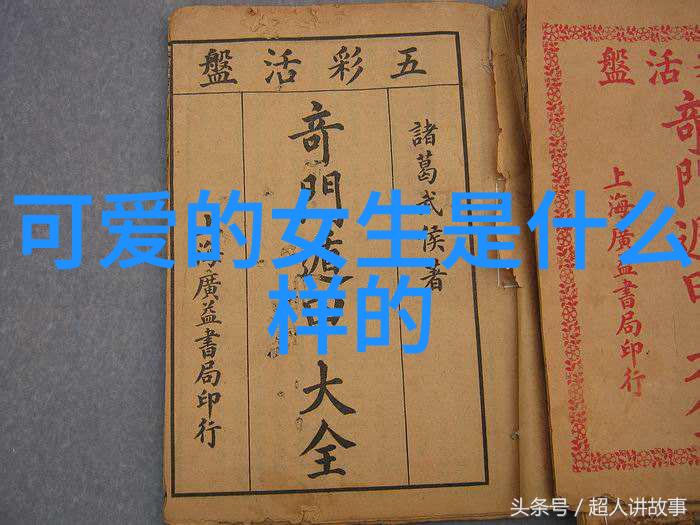 五彩活盤
諸葛武侯著
奇門遁甲大全
上海廣益書局印行
活盤
奇門遁甲大全
上海廣益書局印行
可爱的女生是什么
样的
头条号 / 超人讲故事